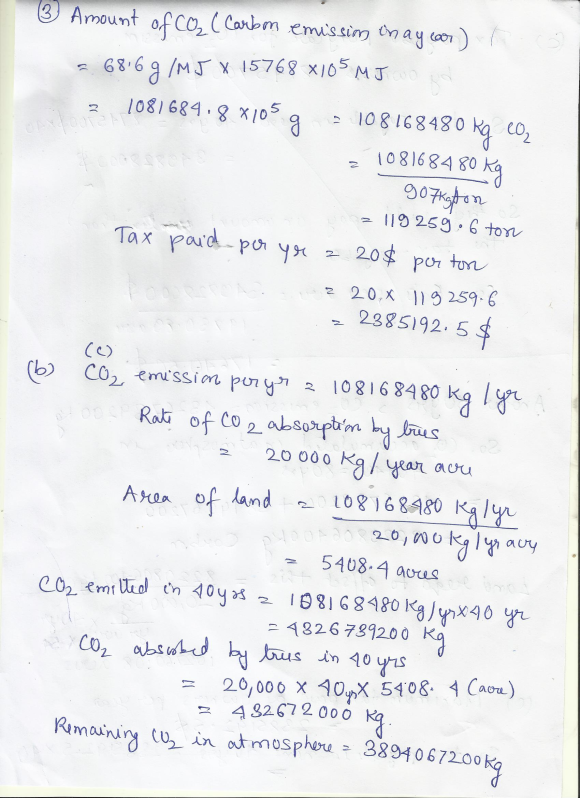 ③ Amount of CO₂ (Carbon emission in a year)
= 68.6 g/MJ x 15768 x10⁵ MJ
= 1081684.8 x10⁵ g = 108168480 Kg CO₂
= 108168480 Kg
907Kg/ton
= 119259.6 ton
Tax paid per yr = 20$ per ton
= 20 x 119259.6
= 2385192.5 $
(c)
(b) CO₂ emission per yr = 108168480 Kg / yr
Rate of CO₂ absorption by trees
= 20000 Kg / year acre
Area of land = 108168480 Kg/yr
20,000 Kg/yr acre
= 5408.4 acres
CO₂ emitted in 40yrs = 108168480 Kg/yr x 40 yr
= 4326739200 Kg
CO₂ absorbed by trees in 40 yrs
= 20,000 x 40yr x 5408.4 (acre)
= 432672000 Kg.
Remaining CO₂ in atmosphere = 3894067200Kg